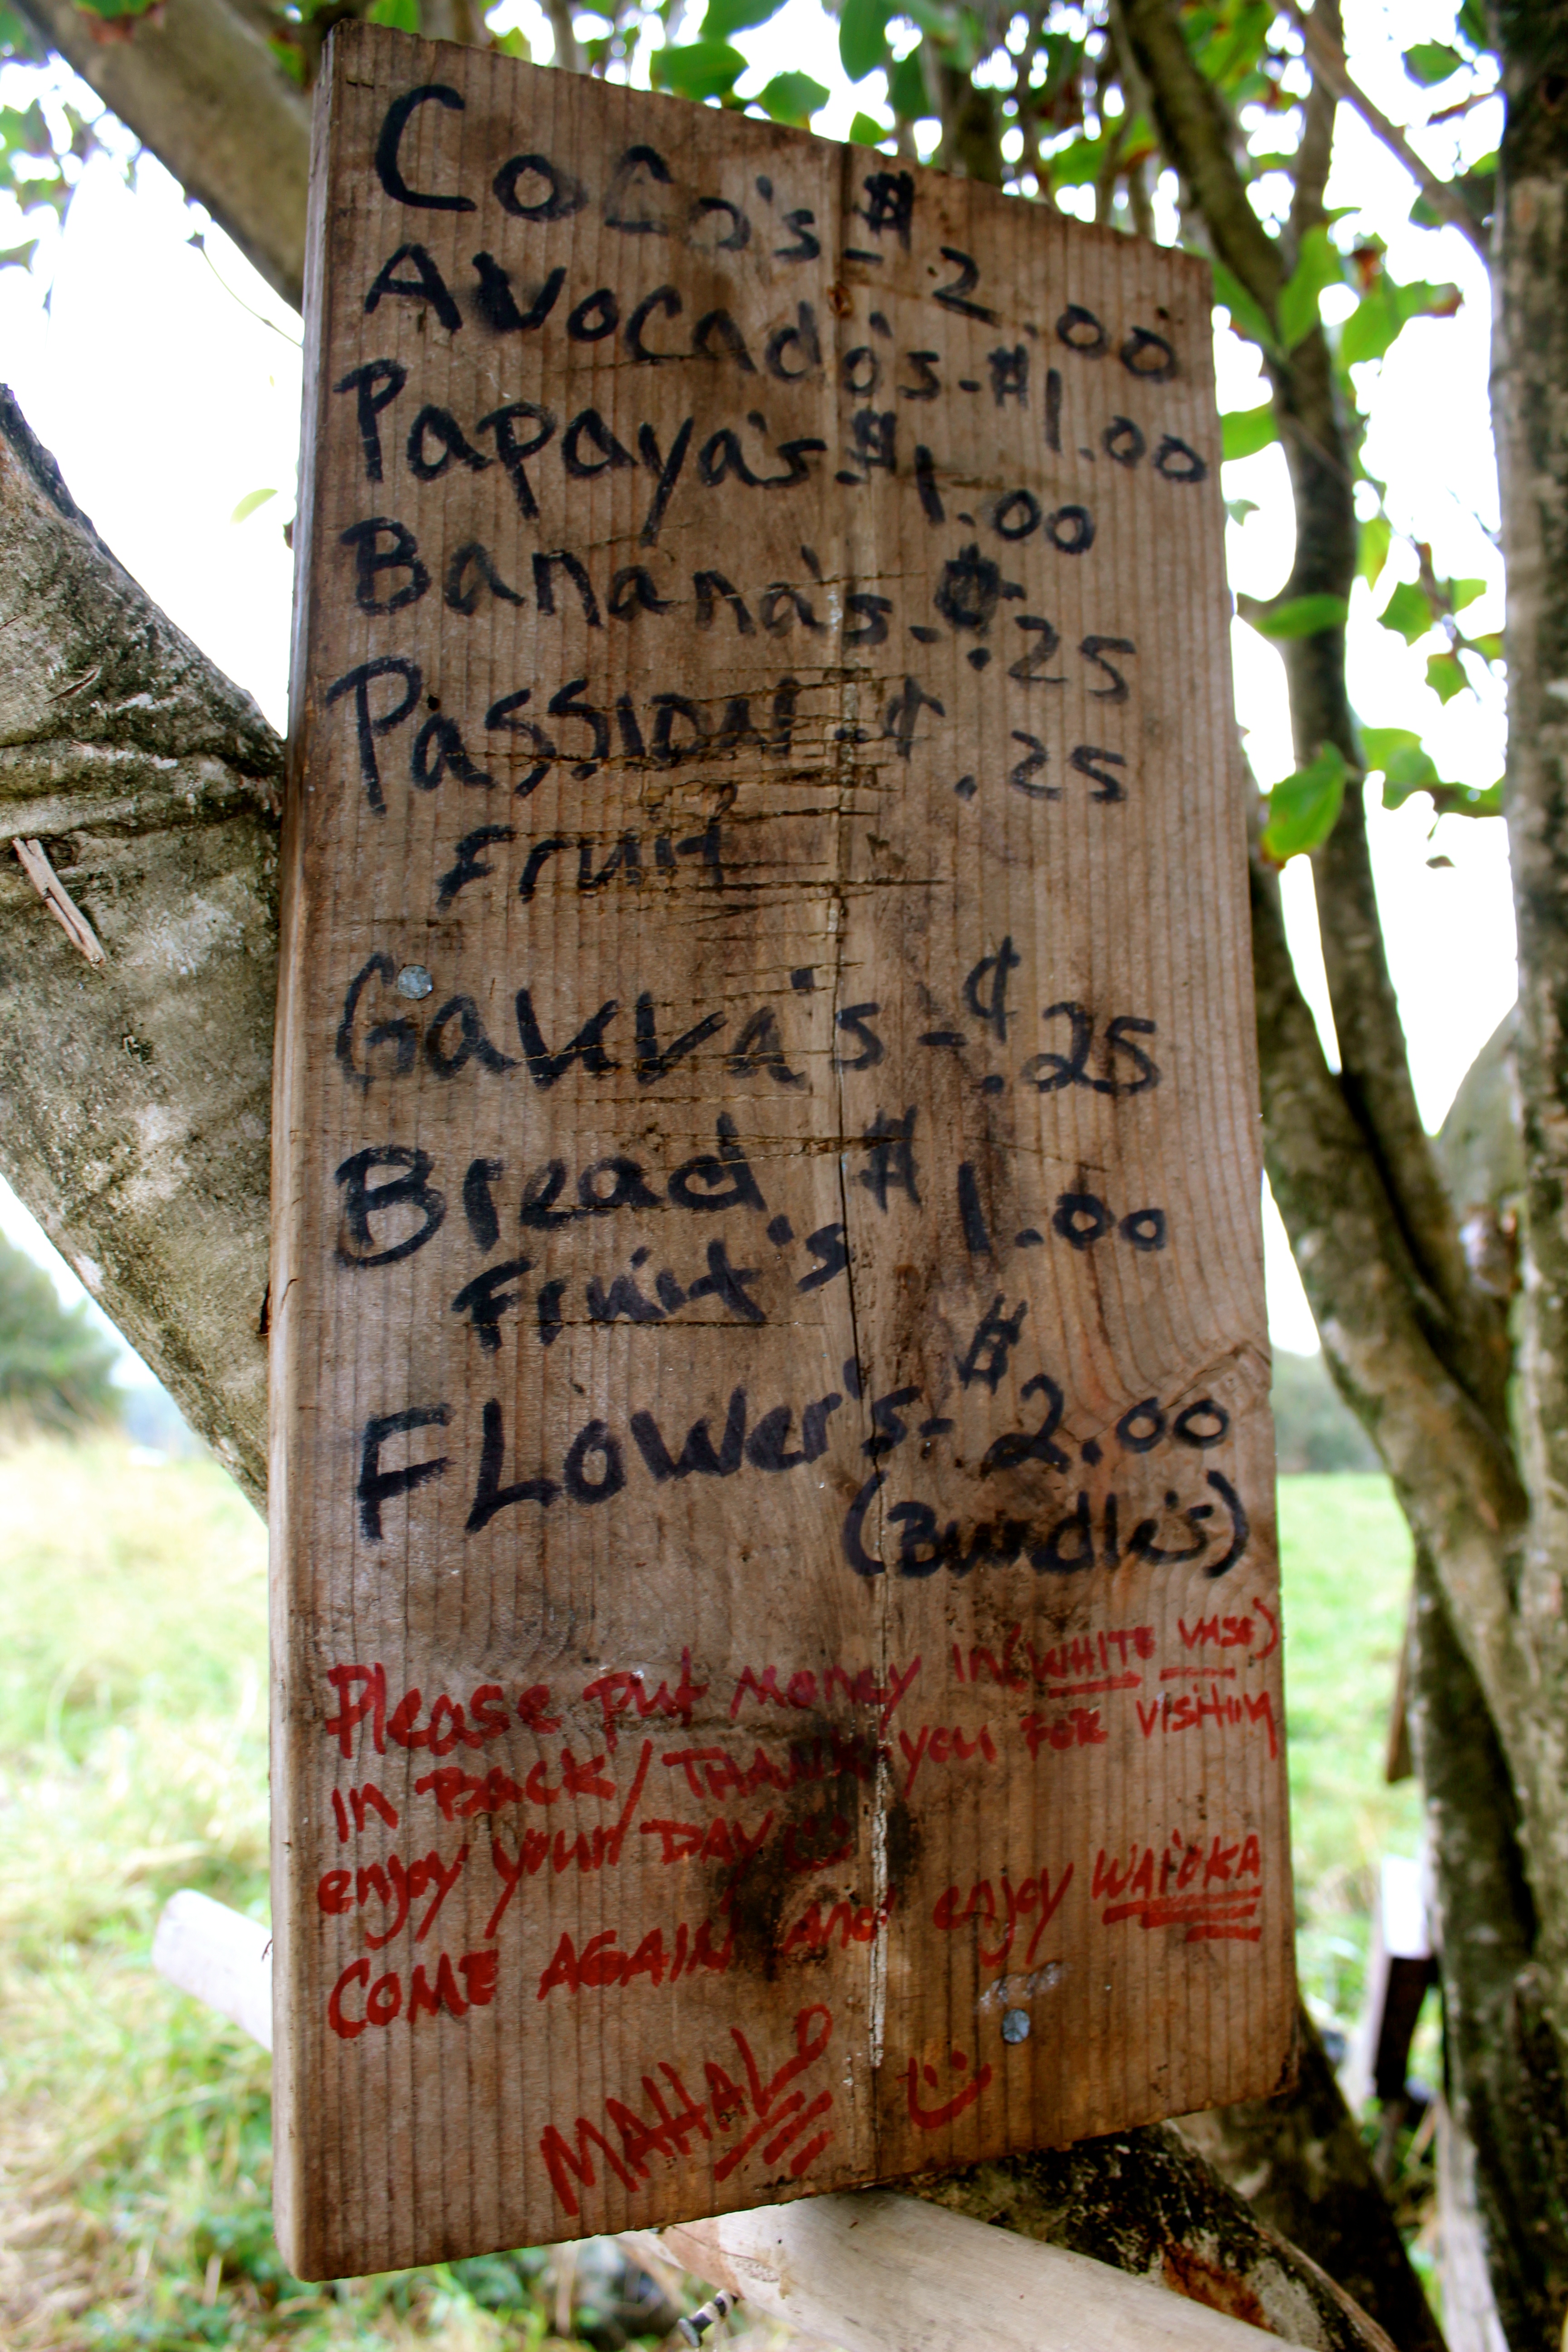 CoCo's - $2.00
Avocado's - $1.00
Papaya's - $1.00
Banana's - ¢.25
Passion - ¢.25
Fruit
Gauva's - ¢.25
Bread $1.00
Fruit's
FLower's - $2.00
(Bundle's)
Please put Money In (WHITE VASE)
In BACK / THANK you FOR VISITING
enjoy your DAY
COME AGAIN and enjoy WAIOKA
MAHALO